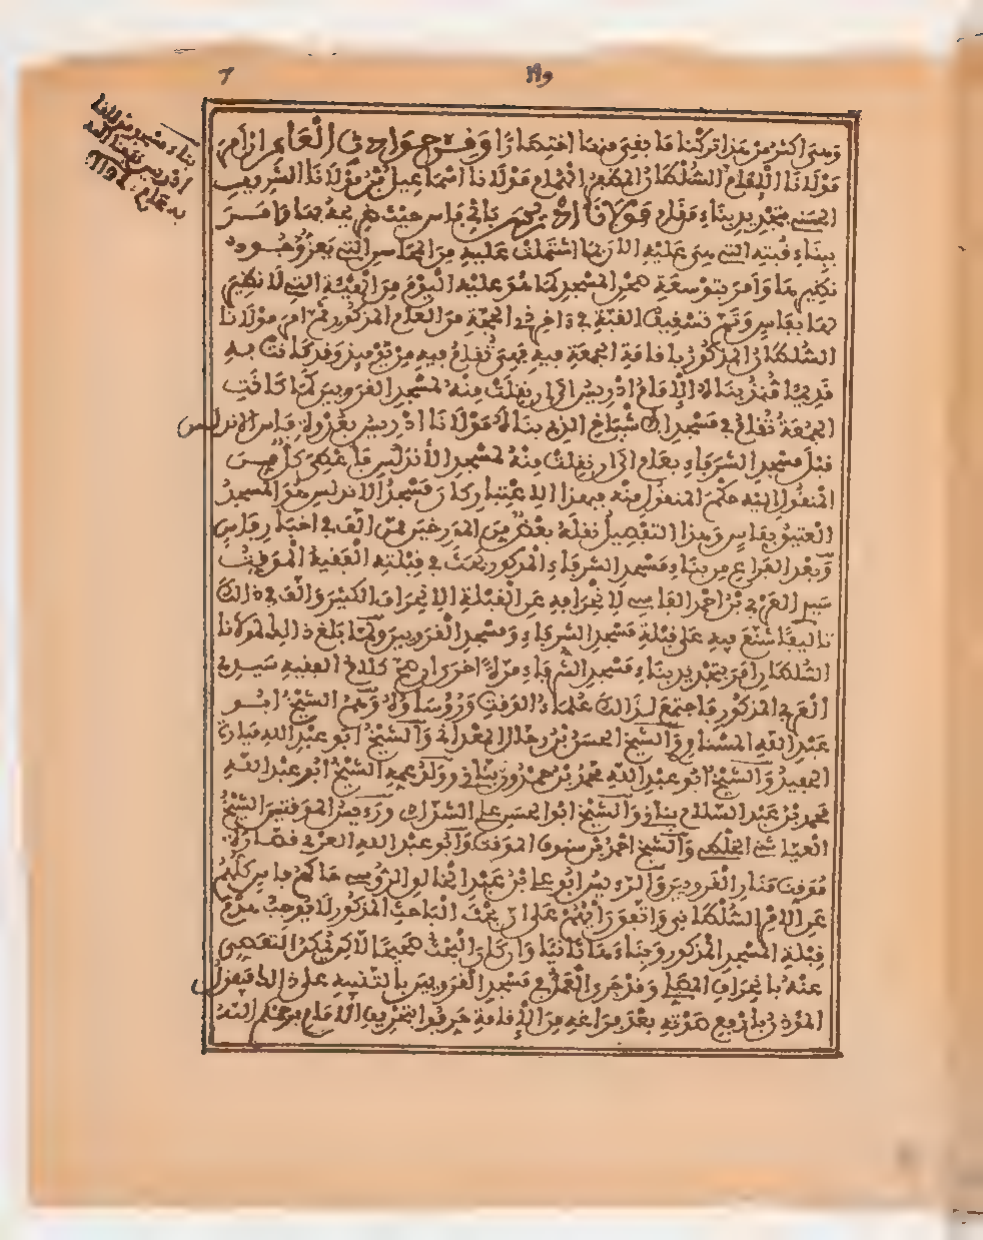 بناء مسجد مولانا
ادريس نفعنا الله
به عام 1132
وهى اكثر من هذا تركنا ما بقي منها اختصارا وفي حوادث العام ازامر
مولانا الإمام السلطان المظفر الهمام مولانا اسماعيل بن مولانا الشريف
الحسني بتجديد بناء مقام مولانا ادريس باني فاس حيث ضريحه بها وامر
ببناء قبته التي هي عليه الآن بما اشتملت عليه من المحاسن التي يعز وجود
نظيرها وامر بتوسعة صحن المسجد كما هو عليه اليوم من الهيئة التي لا نظير
لها بفاس وتم تسقيف القبة في ذي الحجة من العام المذكور ثم امر مولانا
السلطان المذكور باقامة الجمعة فيه فهي تقام فيه من يومئذ وقد كانت به
قديما منذ بناه الإمام ادريس الى ان نقلت منه لمسجد القرويين كما كانت
الجمعة تقام في مسجد الاشياخ الذي بناه مولانا ادريس بعدوة فاس الاندلس
قبل مسجد الشرفاء بعام الى ان نقلت منه لمسجد الأندلس فاعطي كل من
المنقول اليه حكم المنقول منه فبهذا الاعتبار كان مسجد الاندلس هو المسجد
العتيق بفاس وهذا التفصيل نقله بعض من المؤرخين ممن الف في اخبار فاس
وبعد الفراغ من بناء مسجد الشرفاء المذكور بحث في قبلته الفقيه الموقت
سيدي العربي بن احمد الفاسي لانحرافه عن القبلة الانحراف الكثير والف في ذلك
تاليفا شنع فيه على قبلة مسجد الشرفاء ومسجد القرويين ولما بلغ ذلك لمولانا
السلطان امر بتجديد بناء مسجد الشرفاء مرة اخرى ان صح كلام الفقيه سيدي
العربي المذكور فاجتمع لذلك علماء الوقت ورؤساؤه وهم الشيخ ابو
عبد الله المسناوي والشيخ الحسن بن رحال المعداني والشيخ ابو عبد الله ميارة
الحفيد والشيخ ابو عبد الله محمد بن حمدون بناني وولد عمه الشيخ ابو عبد الله
محمد بن عبد السلام بناني والشيخ ابو الحسن علي الشدادي ورءيس الموقتين الشيخ
العياشي الخلطي والشيخ احمد بن الموقت وابو عبد الله العربي قصارة
موقت منار القرويين والرءيس ابو علي بن عبد الخالق الروسي حاكم فاس كلهم
عن الامر السلطاني واتفق رايهم على ان بحث الباحث المذكور لا يوجب هدم
قبلة المسجد المذكور وبناءها ثانيا وان كان البحث صحيحا لاكن يمكن التفصي
عنه بانحراف المصلي وقد جرى العمل في مسجد القرويين بالتنبيه على ذلك فيقول
المؤذن بارفع صوته بعد فراغه من الإقامة حرفوا تحريف الامام يرحمكم الله